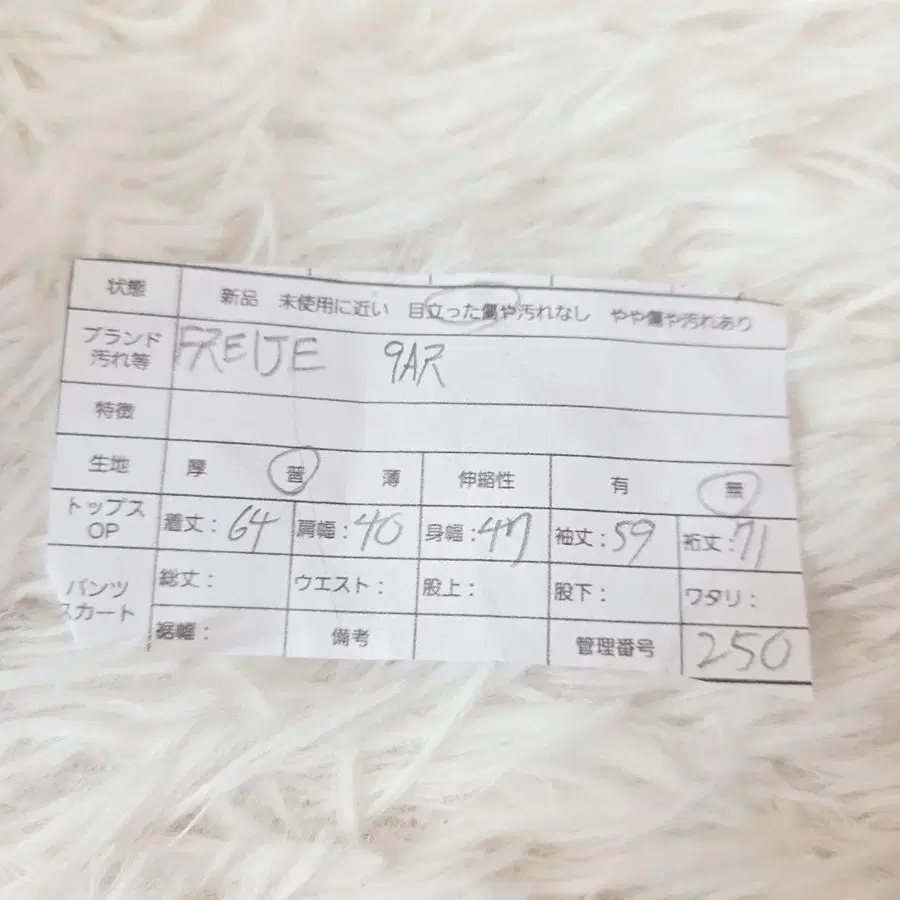 状態 新品 未使用に近い 目立った傷や汚れなし やや傷や汚れあり
ブランド FREIJE 9AR
汚れ等
特徴
生地 厚 普 薄 伸縮性 有 無
トップス 着丈:64 肩幅:40 身幅:47 袖丈:59 裄丈:71
OP
パンツ 総丈: ウエスト: 股上: 股下: ワタリ:
スカート
裾幅: 備考 管理番号 250